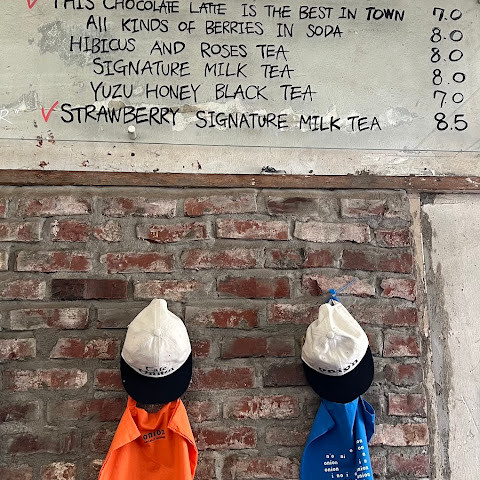 THIS CHOCOLATE LATTE IS THE BEST IN TOWN 7.0
All KINDS OF BERRIES IN SODA 8.0
HIBICUS AND ROSES TEA 8.0
SIGNATURE MILK TEA 8.0
YUZU HONEY BLACK TEA 7.0
STRAWBERRY SIGNATURE MILK TEA 8.5
Café
onion
onion
onion
onion
onion